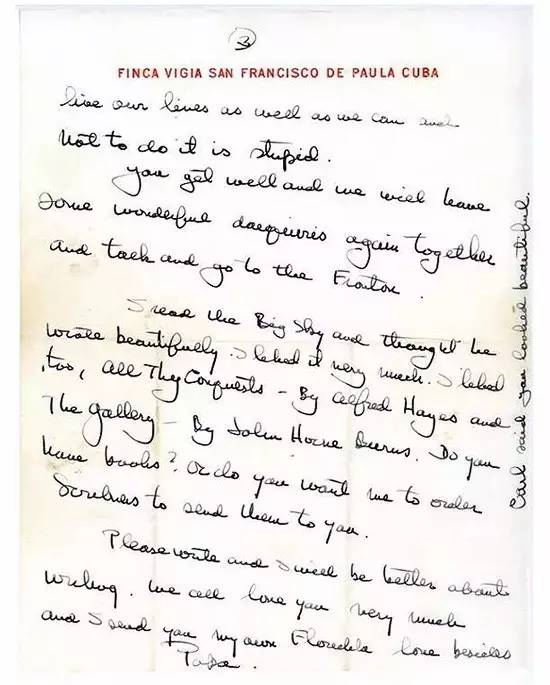 3
FINCA VIGIA SAN FRANCISCO DE PAULA CUBA
live our lives as well as we can and
not to do it is stupid.
You get well and we will have
some wonderful daequiris again together
and talk and go to the Fronton.
I read the Big Sky and thought he
wrote beautifully. I liked it very much. I liked
too, All Thy Conquests - By Alfred Hayes and
The Gallery - By John Horne Burns. Do you
have books? Or do you want me to order
Scribners to send them to you.
Please write and I will be better about
writing. We all love you very much
and I send you my own love besides
Papa.
said you looked beautiful.